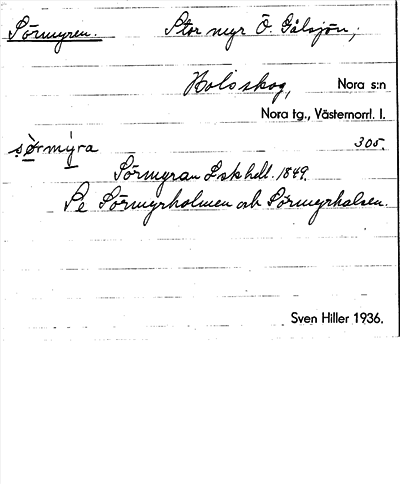 Sörmyren. Stor myr Ö. Gålsjön;
Holoskog, Nora s:n
Nora tg., Västernorrl. l.
sörmýra 305.
Sörmyran Lskhdl. 1849.
Se Sörmyrholmen och Sörmyrhalsen.
Sven Hiller 1936.